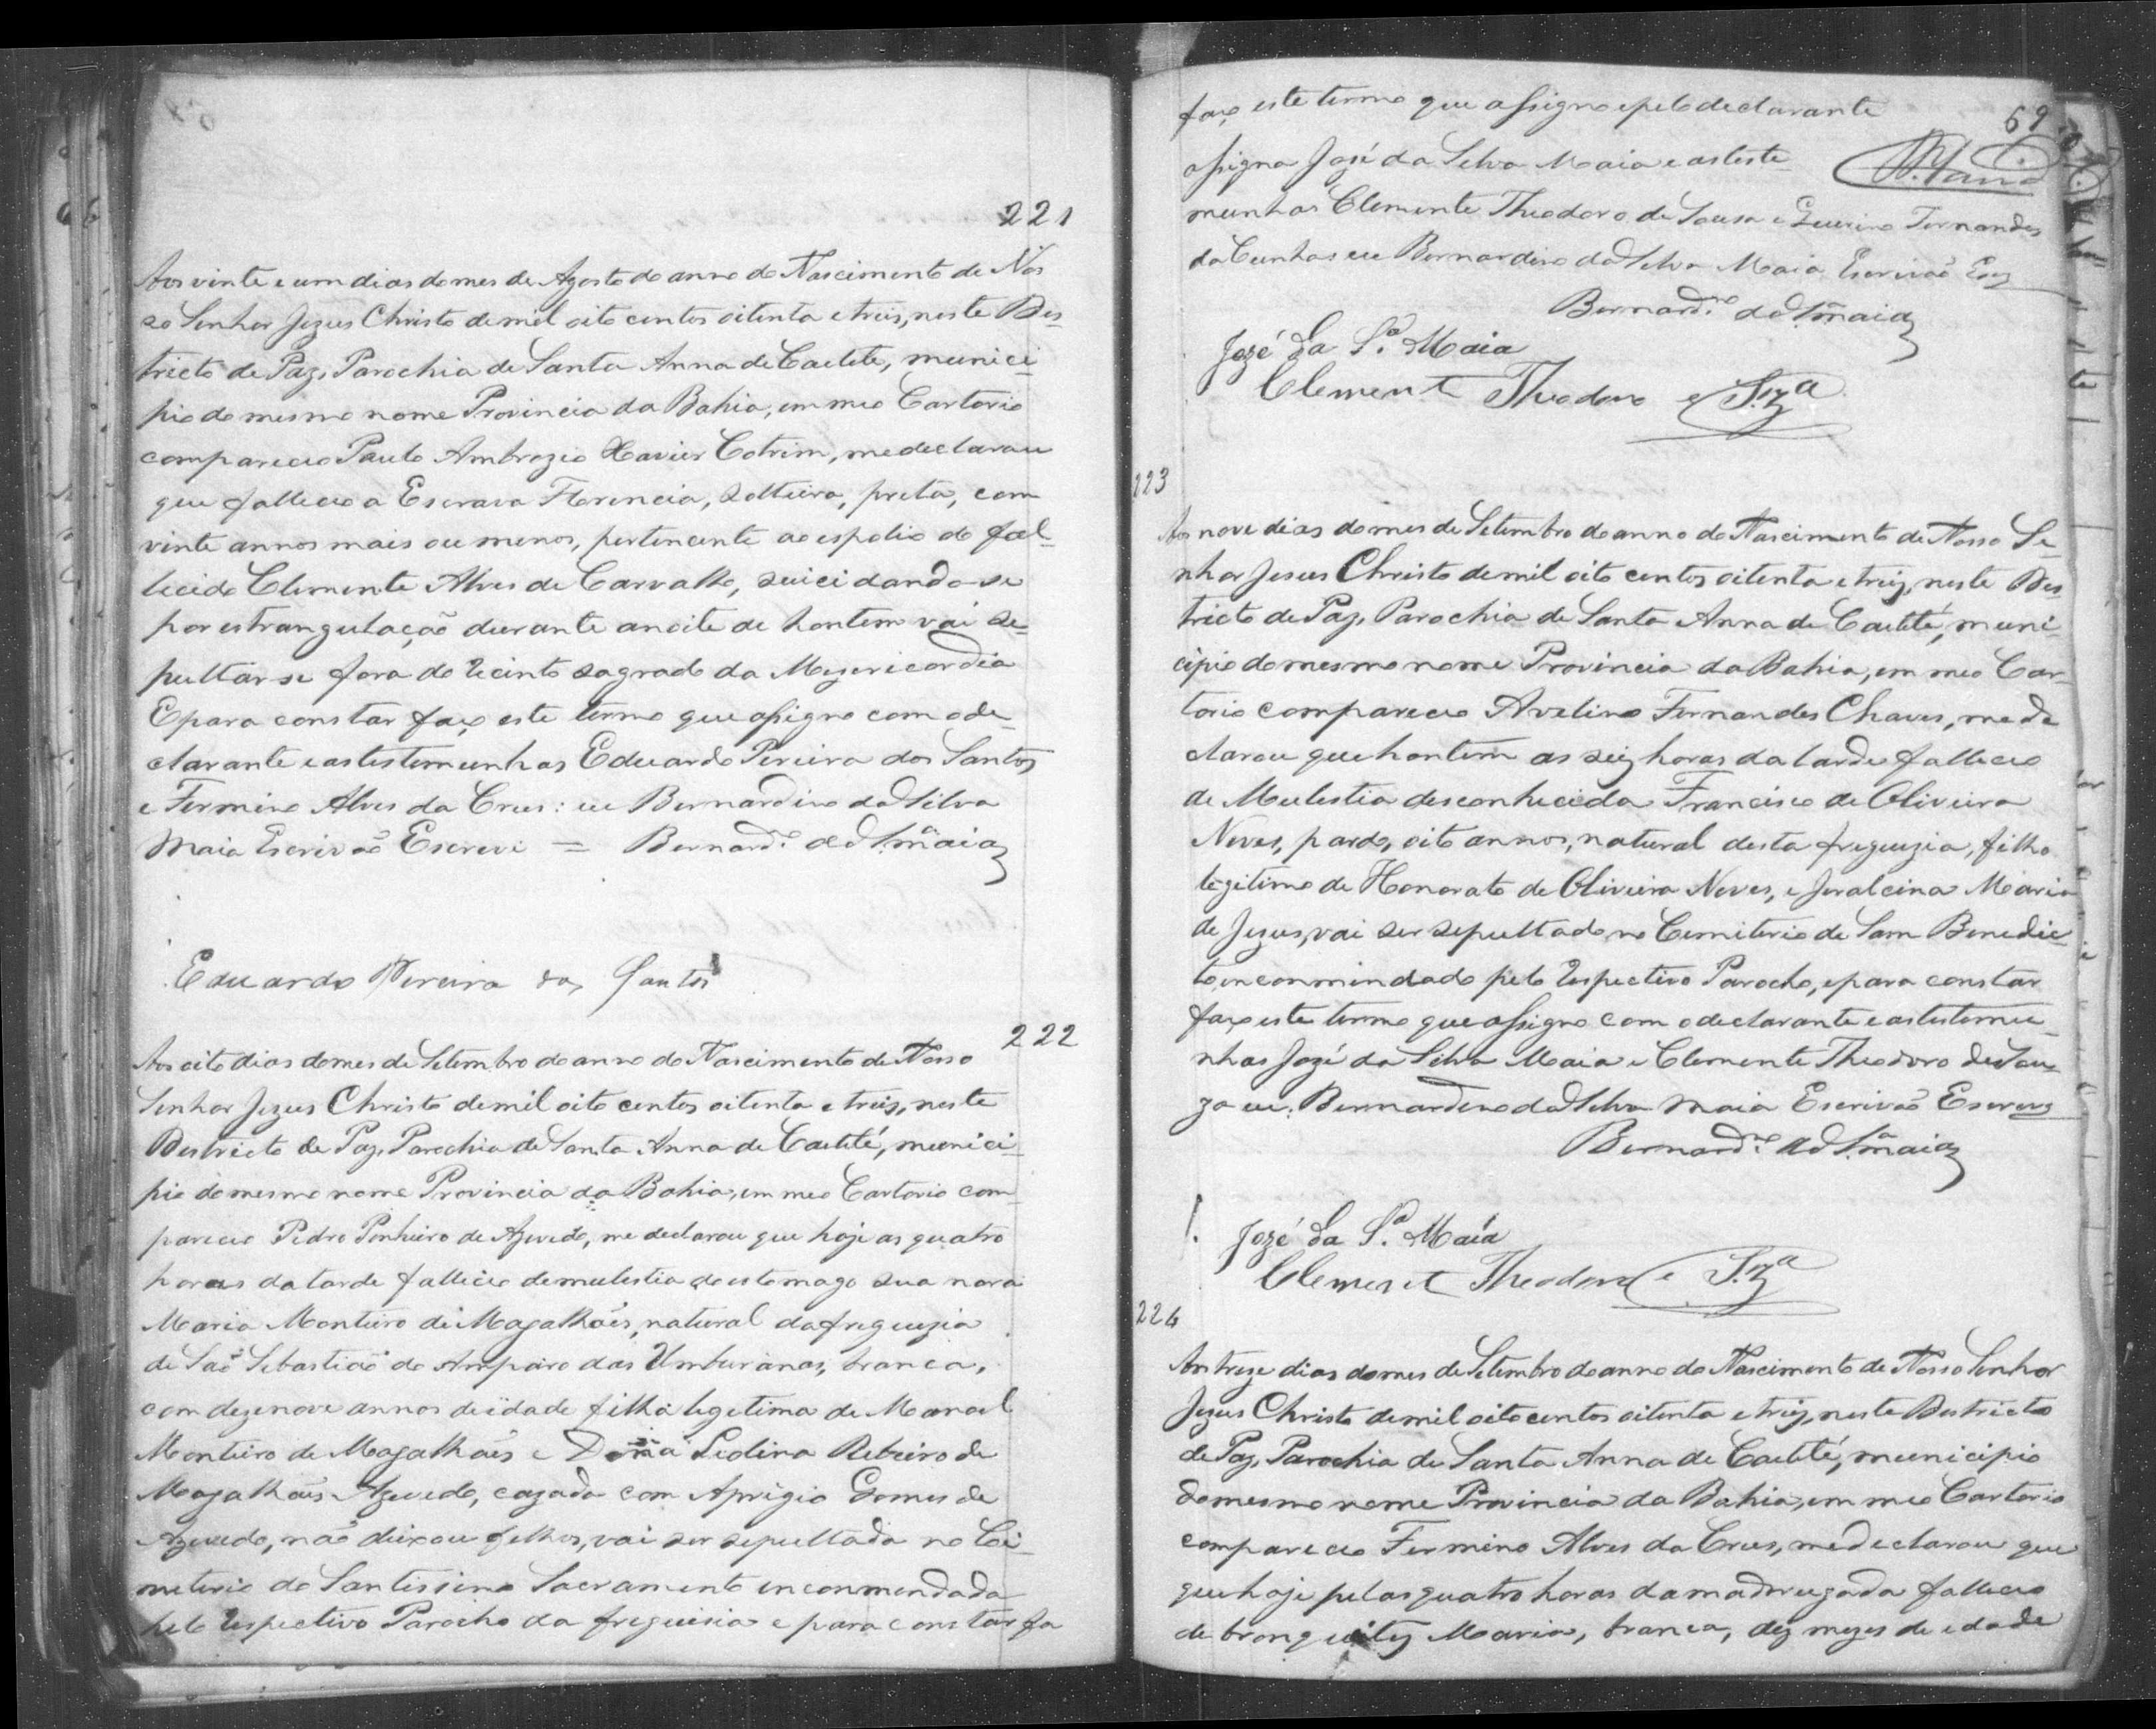 221
Aos vinte e um dias do mes de Agosto do anno do Nascimento de Nos
so Senhor Jezus Christo de mil oito centos oitenta e treis, neste Des-
tricto de Paz, Parochia de Santa Anna de Caetete, munici-
pio do mesmo nome Provincia da Bahia, em meo Cartorio
compareceo Paulo Ambrozio Xavier Cotrim, me declarou
que falleceo a Escrava Florencia, solteira, preta, com
vinte annos mais ou menos, pertencente ao espolio do fal-
lecido Clemente Alves de Carvalho, suicidando-se
por estrangulação durante a noite de hontem vai se-
pultar-se fora do recinto sagrado da Mizericordia
E para constar faço este termo que assigno com o de-
clarante e as testemunhas Eduardo Pereira dos Santos
e Fermino Alves da Crus: eu Bernardino da Silva
Maia Escrivão Escrevi = Bernard.º da S.ª Maia
Eduardo Pereira dos Santos
222
Aos oito dias do mes de Setembro do anno do Nascimento de Nosso
Senhor Jezus Christo de mil oito centos oitenta e treis, neste
Destricto de Paz, Parochia de Santa Anna de Caetité, munici-
pio do mesmo nome Provincia da Bahia, em meo Cartorio com-
pareceo Pedro Penheiro de Azevedo, me declarou que hoje as quatro
horas da tarde falleceo de mulestia do estomago sua nora
Maria Monteiro de Magalhães, natural da freguezia
de São Sebastião do Amparo das Umburanas, branca,
com dezenove annos de idade filha legetima de Manoel
Monteiro de Magalhães e Dona Ribeiro de
Magalhães Azevedo, cazada com Aprigio Gomes de
Azevedo, não deixou filhos, vai ser sepultada no Ce-
meterio do Santissimo Sacramento enconmendada
pelo respectivo Parocho da freguisia e para constar fa
69
faço este termo que assigno e pelo declarante
assigna José da Selva Maia e as teste-
munhas Clemente Theodoro de Sousa e Fernandes
da Cunha eu Bernardino da Selva Maia Escrivão Esc
Bernard.º da S.ª Maia
Jozé da S.ª Maia
Clement Theodoro e Sz.ª
223
Aos nove dias do mes de Setembro do anno do Nascimento de Nosso Se-
nhor Jesus Christo de mil oito centos oitenta e treiz, neste Des
tricto de Paz, Parochia de Santa Anna de Caetité, muni-
cipio do mesmo nome Provincia da Bahia, em meo Car-
torio compareceo Avelino Fernandes Chaves, me de
clarou que hontem as seiz horas da tarde falleceo
de Mulestia desconhecida Francisco de Oliveira
Neves, pardo, oito annos, natural desta freguizia, filho
legitimo de Honorato de Oliveira Neves, e Maria
de Jezus, vai ser sepultado no Cemiterio de Sam Benedic-
to, enconmindado pelo respectivo Parocho, e para constar
faço este termo que assigno com o declarante e as testemu-
nhas Jozé da Selva Maia e Clemente Theodoro de Sou-
za eu: Bernardino da Selva Maia Escrivão Escrevi
Bernard.º da S.ª Maia
Jozé da S.ª Maia
Clement Theodoro e Sz.ª
224
Aos treze dias do mes de Setembro do anno do Nascimento de Nosso Senhor
Jezus Christo de mil oito centos oitenta e treiz, neste Destricto
de Paz, Parochia de Santa Anna de Caetité, municipio
do mesmo nome Provincia da Bahia, em meo Cartorio
compareceo Fermino Alves da Crus, me declarou que
que hoje pelas quatro horas da madrugada falleceo
de bronquitez Maria, branca, dez mezes de edade